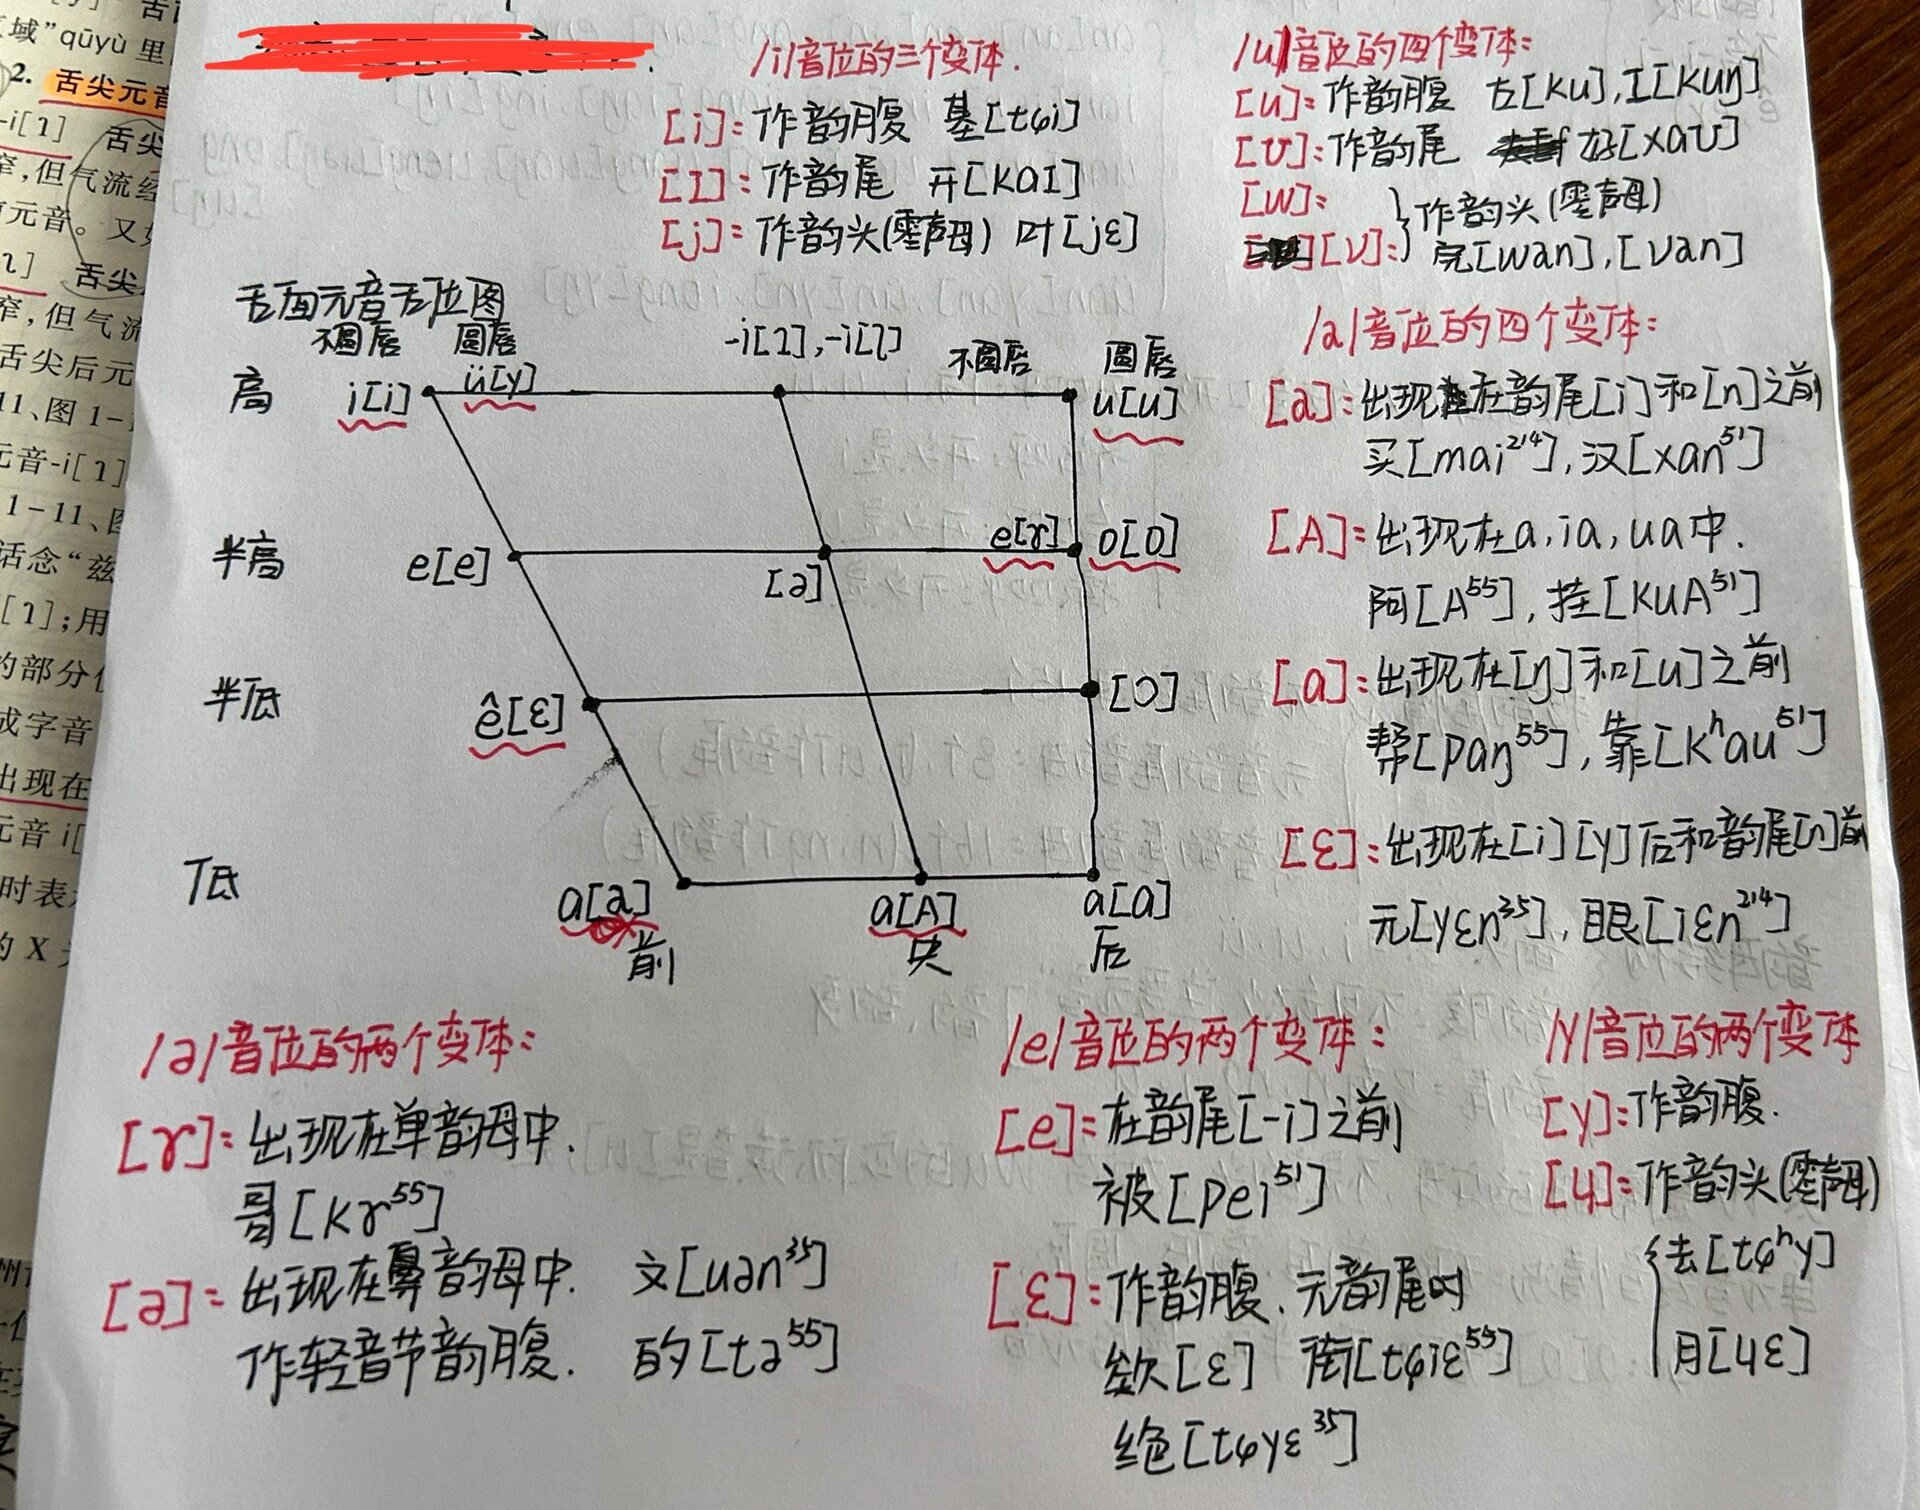 域”qūyù 里
2. 舌尖元音
-i[ɿ] 舌尖
窄,但气流经
元音。又如
舌尖
窄,但气流
舌尖后元
11、图 1-
元音-i[ɿ]
1-11、图
话念“兹
[ɿ];用
的部分
成字音
出现在
元音 i[
时表
的 X
/i/音位的三个变体.
[i]:作韵腹 基[tɕi]
[I]:作韵尾 开[kaI]
[j]:作韵头(零声母) 叶[jɛ]
/u/音位的四个变体:
[u]:作韵腹 古[ku],工[kuŋ]
[ʊ]:作韵尾 好[xaʊ]
[w]:
[ʋ]:
}作韵头(零声母)
完[wan],[ʋan]
舌面元音舌位图
不圆唇 圆唇 -i[ɿ],-i[ʅ] 不圆唇 圆唇
高 i[i] ü[y] u[u]
半高 e[e] [ə] e[ɤ] o[o]
半低 ê[ɛ] [ɔ]
下低 a[a] a[A] a[ɑ]
前 央 后
/a/音位的四个变体:
[a]:出现在韵尾[i]和[n]之前
买[mai²¹⁴],汉[xan⁵¹]
[A]:出现在a,ia,ua中.
阿[A⁵⁵],挂[kuA⁵¹]
[ɑ]:出现在[ŋ]和[u]之前
帮[pɑŋ⁵⁵],靠[kʰɑu⁵¹]
[ɛ]:出现在[i][y]后和韵尾[n]前
元[yɛn³⁵],眼[iɛn²¹⁴]
/ə/音位的两个变体:
[ɤ]:出现在单韵母中.
哥[kɤ⁵⁵]
[ə]:出现在鼻韵母中. 文[uən³⁵]
作轻音节韵腹. 的[tə⁵⁵]
/e/音位的两个变体:
[e]:在韵尾[-i]之前
被[pei⁵¹]
[ɛ]:作韵腹、无韵尾时
欸[ɛ] 街[tɕiɛ⁵⁵]
绝[tɕyɛ³⁵]
/y/音位的两个变体
[y]:作韵腹.
[ɥ]:作韵头(零声母)
去[tɕʰy]
月[ɥɛ]